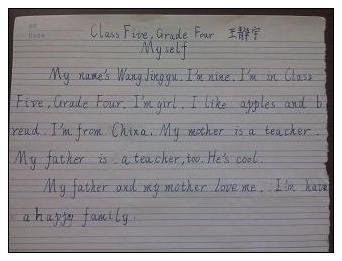 Class Five, Grade Four 王静宇
Myself
My name's Wang Jingyu. I'm nine. I'm in Class
Five, Grade Four. I'm girl. I like apples and b
read. I'm from China. My mother is a teacher.
My father is a teacher, too. He's cool.
My father and my mother love me. I'm have
a happy family.